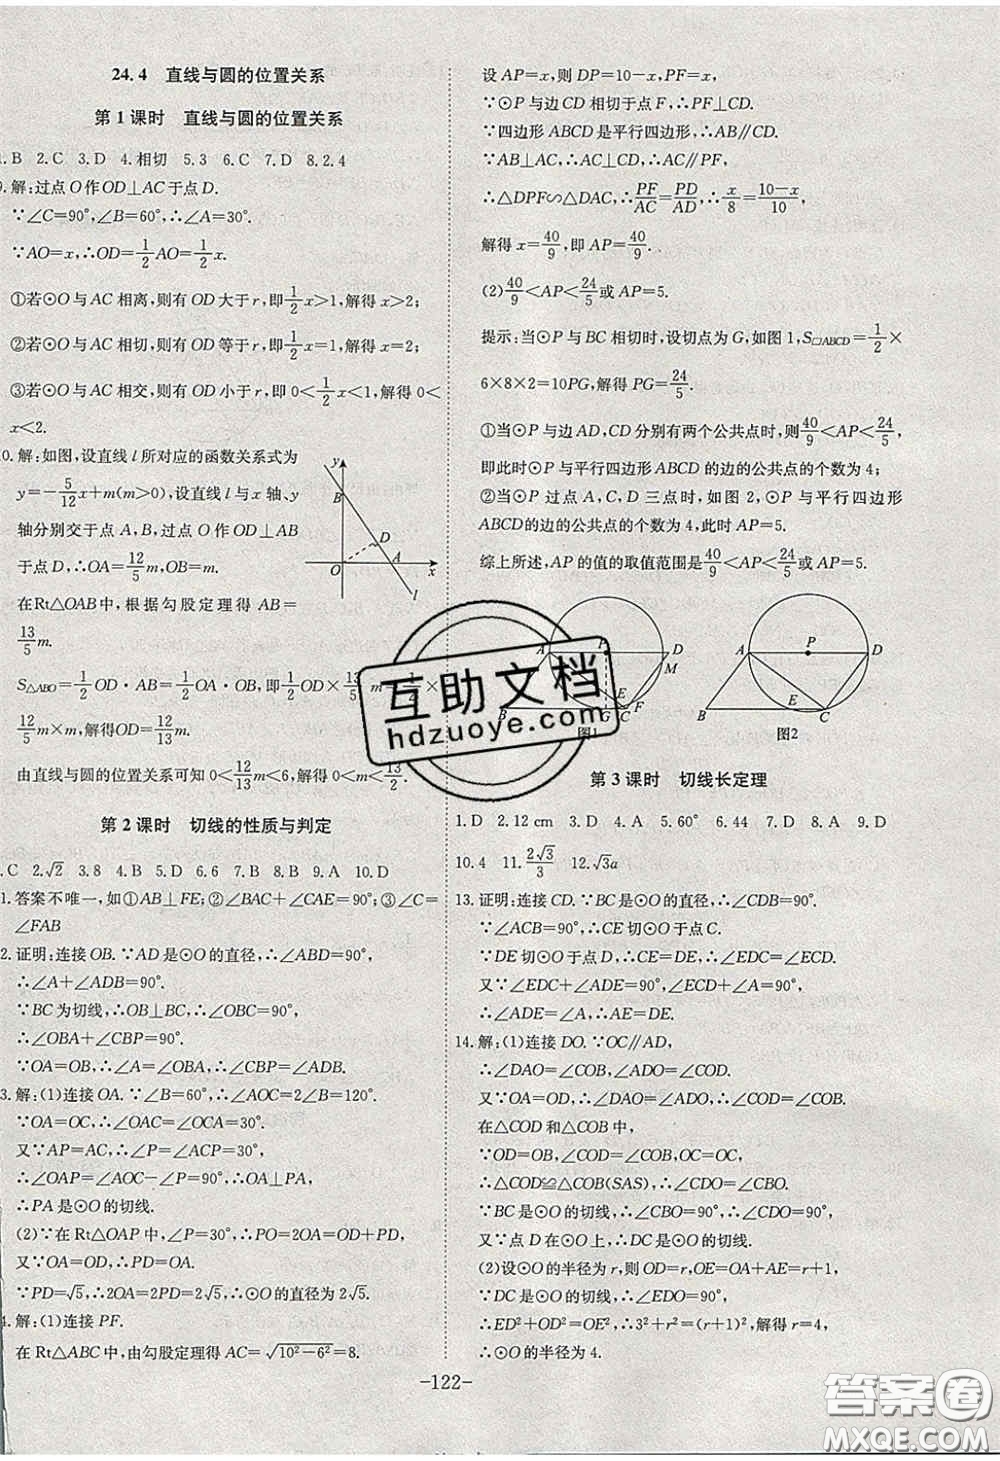 24.4 直线与圆的位置关系
第1课时 直线与圆的位置关系
1. B 2. C 3. D 4. 相切 5. 3 6. C 7. D 8. 2.4
9. 解:过点O作OD⊥AC于点D.
∵∠C=90°,∠B=60°,∴∠A=30°.
∵AO=x,∴OD=1/2AO=1/2x.
①若⊙O与AC相离,则有OD大于r,即1/2x>1,解得x>2;
②若⊙O与AC相切,则有OD等于r,即1/2x=1,解得x=2;
③若⊙O与AC相交,则有OD小于r,即0<1/2x<1,解得0<
x<2.
0. 解:如图,设直线l所对应的函数关系式为
y=-5/12x+m(m>0),设直线l与x轴、y
轴分别交于点A,B,过点O作OD⊥AB
于点D,∴OA=12/5m,OB=m.
在Rt△OAB中,根据勾股定理得AB=
13/5m.
S△ABO=1/2OD·AB=1/2OA·OB,即1/2OD×13/5m=1/2×
12/5m×m,解得OD=12/13m.
由直线与圆的位置关系可知0<12/13m<6,解得0<m<13/2.
y
B
D
A
O
x
l
第2课时 切线的性质与判定
1. C 2. √2 3. 8 4. B 5. D 6. 6 7. B 8. B 9. A 10. D
1. 答案不唯一,如①AB⊥FE;②∠BAC+∠CAE=90°;③∠C=
∠FAB
2. 证明:连接OB.∵AD是⊙O的直径,∴∠ABD=90°,
∴∠A+∠ADB=90°.
∵BC为切线,∴OB⊥BC,∴∠OBC=90°,
∴∠OBA+∠CBP=90°.
∵OA=OB,∴∠A=∠OBA,∴∠CBP=∠ADB.
3. 解:(1)连接OA.∵∠B=60°,∴∠AOC=2∠B=120°.
∵OA=OC,∴∠OAC=∠OCA=30°.
又∵AP=AC,∴∠P=∠ACP=30°,
∴∠OAP=∠AOC-∠P=90°,∴OA⊥PA,
∴PA是⊙O的切线.
(2)∵在Rt△OAP中,∠P=30°,∴PO=2OA=OD+PD,
又∵OA=OD,∴PD=OA.
∵PD=√5,∴2OA=2PD=2√5,∴⊙O的直径为2√5.
4. 解:(1)连接PF.
在Rt△ABC中,由勾股定理得AC=√(10²-6²)=8.
设AP=x,则DP=10-x,PF=x.
∵⊙P与边CD相切于点F,∴PF⊥CD.
∵四边形ABCD是平行四边形,∴AB∥CD.
∵AB⊥AC,∴AC⊥CD,∴AC∥PF,
∴△DPF∽△DAC,∴PF/AC=PD/AD,∴x/8=(10-x)/10,
解得x=40/9,即AP=40/9.
(2)40/9<AP<24/5或AP=5.
提示:当⊙P与BC相切时,设切点为G,如图1,S▱ABCD=1/2×
6×8×2=10PG,解得PG=24/5.
①当⊙P与边AD,CD分别有两个公共点时,则40/9<AP<24/5,
即此时⊙P与平行四边形ABCD的边的公共点的个数为4;
②当⊙P过点A,C,D三点时,如图2,⊙P与平行四边形
ABCD的边的公共点的个数为4,此时AP=5.
综上所述,AP的值的取值范围是40/9<AP<24/5或AP=5.
A
P
D
M
E
F
B
G
C
图1
A
P
D
E
B
C
图2
第3课时 切线长定理
1. D 2. 12 cm 3. D 4. A 5. 60° 6. 44 7. D 8. A 9. D
10. 4 11. 2√3/3 12. √3a
13. 证明:连接CD.∵BC是⊙O的直径,∴∠CDB=90°.
∵∠ACB=90°,∴CE切⊙O于点C.
∵DE切⊙O于点D,∴CE=DE,∴∠ECD=∠EDC.
又∵∠EDC+∠ADE=90°,∠ECD+∠A=90°,
∴∠ADE=∠A,∴AE=DE.
14. 解:(1)连接DO.∵OC∥AD,
∴∠DAO=∠COB,∠ADO=∠COD.
又∵OA=OD,∴∠DAO=∠ADO,∴∠COD=∠COB.
在△COD和△COB中,
∵OD=OB,∠COD=∠COB,OC=OC,
∴△COD≌△COB(SAS),∴∠CDO=∠CBO.
∵BC是⊙O的切线,∴∠CBO=90°,∴∠CDO=90°,
又∵点D在⊙O上,∴CD是⊙O的切线.
(2)设⊙O的半径为r,则OD=r,OE=AE+OA=r+1.
∵DC是⊙O的切线,∴∠EDO=90°,
∴ED²+OD²=OE²,∴3²+r²=(r+1)²,解得r=4,
∴⊙O的半径为4.
-122-
互助文档
hdzuoye.com
答案卷
MXQE.COM